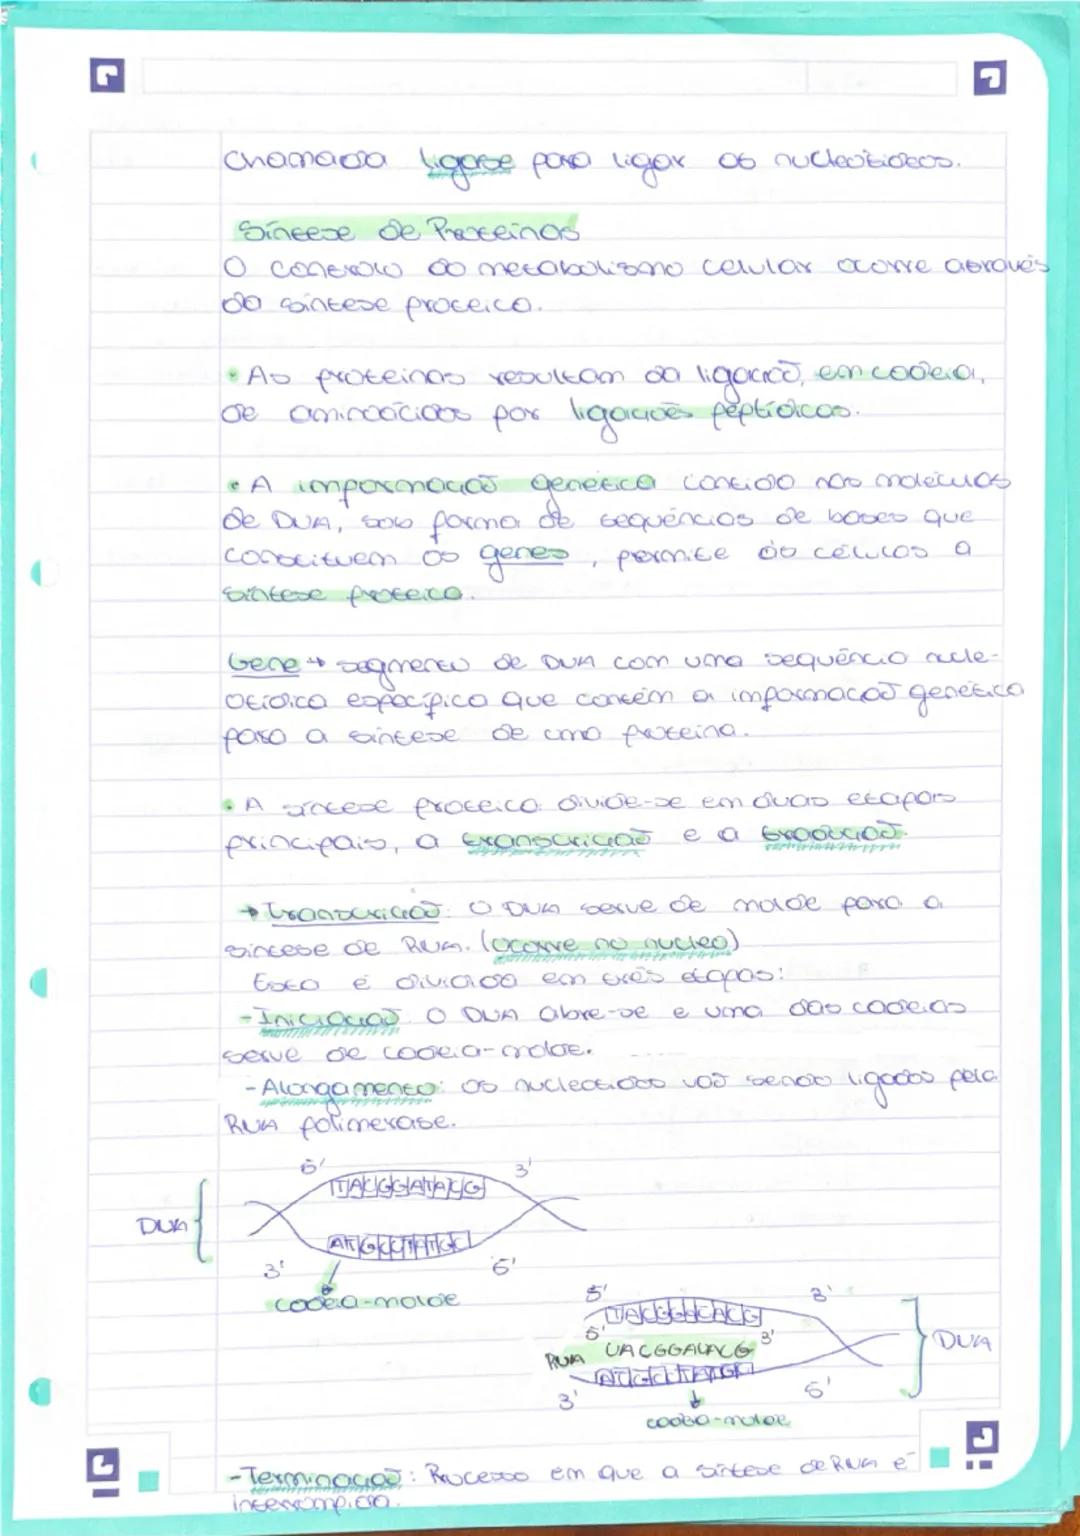 chamada ligase para ligar os nucleotídeos.
Síntese de Proteínas
O controlo do metabolismo celular ocorre através
da síntese proteica.
• As proteínas resultam da ligação, em cadeia,
de aminoácidos por ligações peptídicas.
• A informação genética contida nas moléculas
de DNA, sob forma de sequências de bases que
constituem os genes, permite às células a
síntese proteica.
Gene → segmento de DNA com uma sequência nucle-
otídica específica que contém a informação genética
para a síntese de uma proteína.
• A síntese proteica divide-se em duas etapas
principais, a transcrição e a tradução.
→ Transcrição: O DNA serve de molde para a
síntese de RNA. (ocorre no nucleo)
Esta é dividida em três etapas:
- Iniciação: O DNA abre-se e uma das cadeias
serve de cadeia-molde.
- Alongamento: os nucleotídos vão sendo ligados pela
RNA polimerase.
5' 3'
TACGGATACG
DNA
ATGCCTATGC
3' 5'
cadeia-molde
5' 3'
5' 3'
RNA UACGGAUACG
DNA
ATGCCTATGC
3' 5'
cadeia-molde
- Terminação: Processo em que a síntese de RNA é
interrompida.